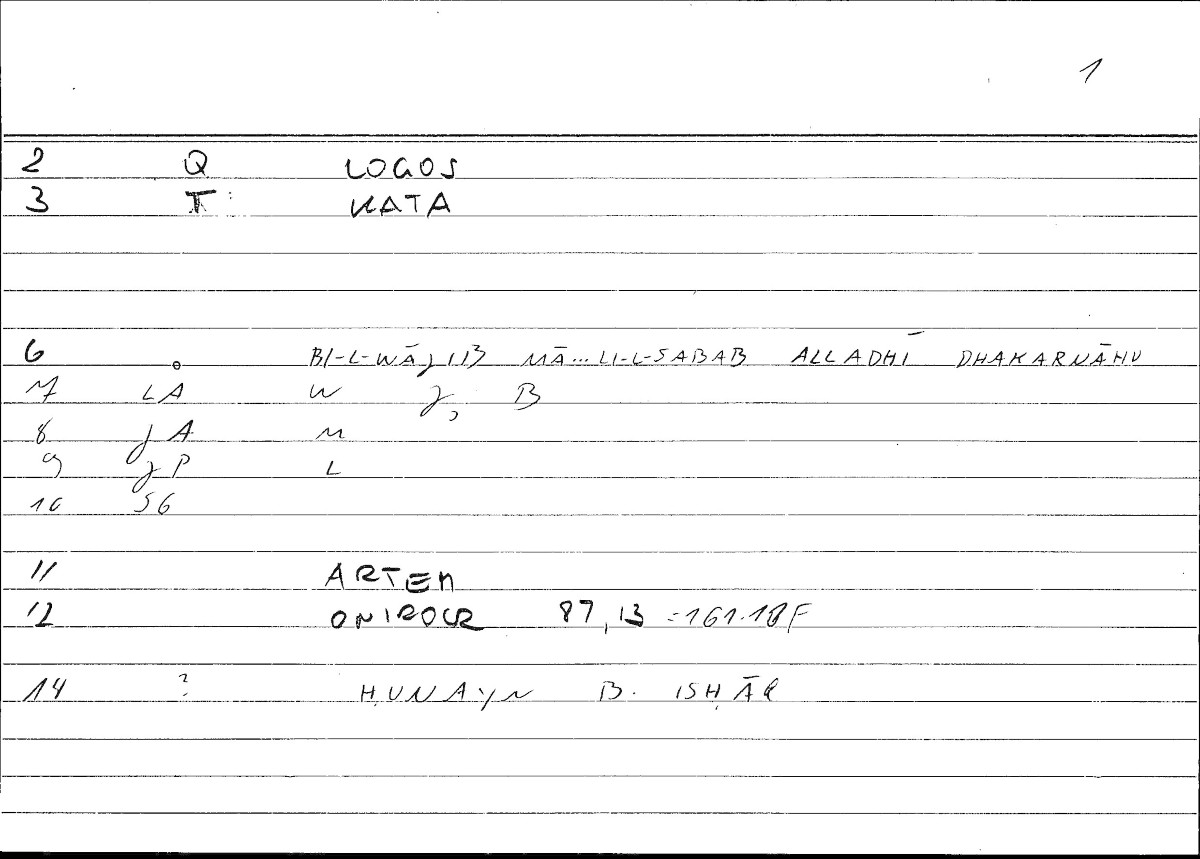 1
2 Q LOGOS
3 T: KATA
6 ° BI-L-WĀJIB MĀ... LI-L-SABAB ALLADHĪ DHAKARNĀHU
7 LA W J, B
8 JA M
9 JP L
10 SG
11 ARTEM
12 ONIROCR 87,13 =161.18F
14 ? ḤUNAYN B. ISḤĀQ